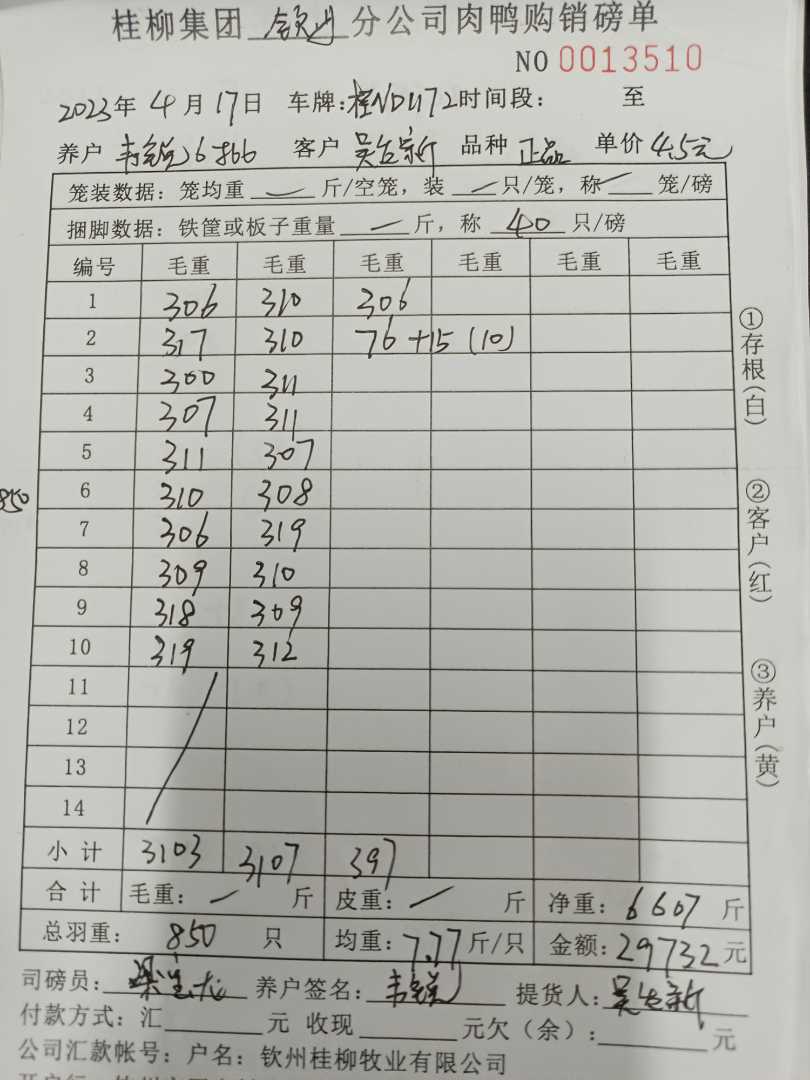 桂柳集团 钦州 分公司肉鸭购销磅单
NO 0013510
2023年 4月 17日 车牌:桂NDU172 时间段: 至
养户 韦 客户 吴 新 品种 正品 单价 4.5元
笼装数据: 笼均重 — 斤/空笼, 装 — 只/笼, 称 — 笼/磅
捆脚数据: 铁筐或板子重量 — 斤, 称 40 只/磅
编号 毛重 毛重 毛重 毛重 毛重 毛重
1 306 310 306
2 317 310 76+15(10)
3 300 311
4 307 311
5 311 307
6 310 308
7 306 319
8 309 310
9 318 309
10 319 312
11
12
13
14
小计 3103 3107 397
合计 毛重: — 斤 皮重: — 斤 净重: 6607 斤
总羽重: 850 只 均重: 7.77 斤/只 金额: 29732 元
司磅员: 梁 龙 养户签名: 韦 提货人: 吴 新
付款方式: 汇 元 收现 元欠(余): 元
公司汇款帐号: 户名: 钦州桂柳牧业有限公司
850
①存根(白)
②客户(红)
③养户(黄)